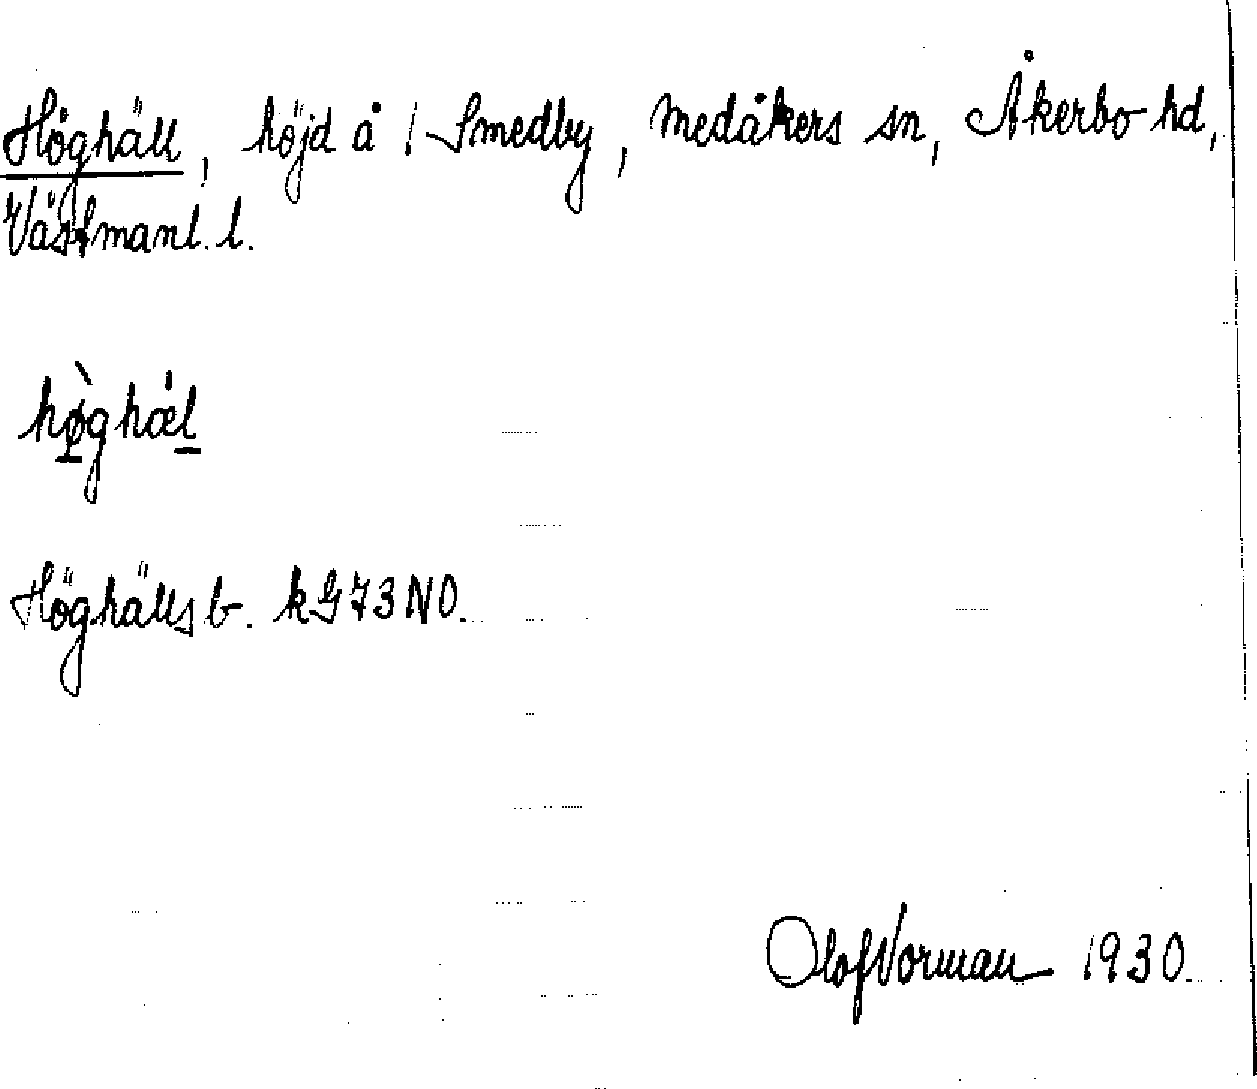 Höghäll, höjd å / Smedby, Medåkers sn, Åkerbo hd,
Västmanl. l.
hø̀ghæ̍l
Höghälls b. kG73NO.
Olof Vorman 1930.